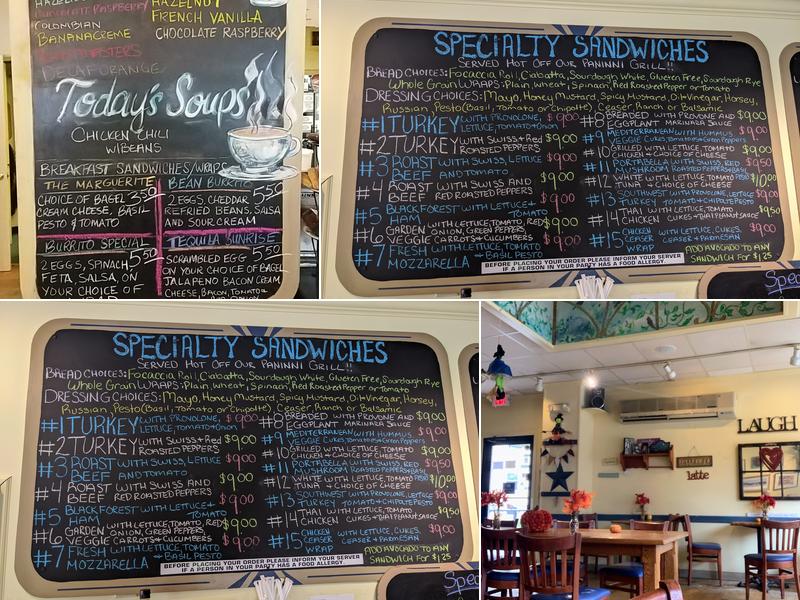 HAZELNUT
CHOCOLATE RASPBERRY
FRENCH VANILLA
COLOMBIAN
CHOCOLATE RASPBERRY
BANANACREME
DECAF ORANGE
Today's Soups
CHICKEN CHILI
W/BEANS
BREAKFAST SANDWICHES/WRAPS
THE MARGUERITE
CHOICE OF BAGEL 3.50
CREAM CHEESE, BASIL
PESTO & TOMATO
BEAN BURRITO
5.50
2 EGGS, CHEDDAR
REFRIED BEANS, SALSA
AND SOUR CREAM
BURRITO SPECIAL
5.50
2 EGGS, SPINACH,
FETA, SALSA, ON
YOUR CHOICE OF
TEQUILA SUNRISE
5.50
SCRAMBLED EGG
ON YOUR CHOICE OF BAGEL
JALAPENO BACON CREAM
CHEESE, BACON, TOMATO &
SPECIALTY SANDWICHES
SERVED HOT OFF OUR PANINNI GRILL!!
BREAD CHOICES: Focaccia Roll, Ciabatta, Sourdough White, Glueten Free, Sourdough Rye
Whole Grain WRAPS: Plain, Wheat, Spinach, Red Roasted Pepper or Tomato
DRESSING CHOICES: Mayo, Honey Mustard, Spicy Mustard, Oil+Vinegar, Horsey,
Russian, Pesto (Basil, Tomato or Chipotle) Ceaser, Ranch or Balsamic
#1 TURKEY WITH PROVOLONE, $9.00
LETTUCE, TOMATO + ONION
#2 TURKEY WITH SWISS + RED $9.00
ROASTED PEPPERS
#3 ROAST WITH SWISS, LETTUCE $9.00
BEEF AND TOMATO
#4 ROAST WITH SWISS AND
BEEF RED ROASTED PEPPERS $9.00
#5 BLACK FOREST WITH LETTUCE +
HAM TOMATO $9.00
#6 GARDEN WITH LETTUCE, TOMATO, RED
ONION, GREEN PEPPERS,
VEGGIE CARROTS + CUCUMBERS $9.00
#7 FRESH WITH LETTUCE, TOMATO,
MOZZARELLA + BASIL PESTO
#8 BREADED WITH PROVONE AND $9.00
EGGPLANT MARINARA SAUCE
#9 MEDITERRANEAN WITH HUMMUS $9.00
VEGGIE CUKES, TOMATOES + GREEN PEPPERS
#10 GRILLED WITH LETTUCE, TOMATO $9.00
CHICKEN + CHOICE OF CHEESE
#11 PORTABELLA WITH SWISS, RED $9.50
MUSHROOM ROASTED PEPPERS + BASIL
#12 WHITE WITH LETTUCE, TOMATO PESTO $10.00
TUNA + CHOICE OF CHEESE
#13 SOUTHWEST WITH PROVOLONE, LETTUCE $9.00
TURKEY TOMATO + CHIPOTLE PESTO
#14 THAI WITH LETTUCE, TOMATO $9.50
CHICKEN CUKES + THAI PEANUT SAUCE
#15 CHICKEN WITH LETTUCE, CUKES, $9.00
CEASER CEASER + PARMESAN
WRAP
ADD AVOCADO TO ANY
SANDWICH FOR $1.25
BEFORE PLACING YOUR ORDER PLEASE INFORM YOUR SERVER
IF A PERSON IN YOUR PARTY HAS A FOOD ALLERGY.
Spec
SPECIALTY SANDWICHES
SERVED HOT OFF OUR PANINNI GRILL!!
BREAD CHOICES: Focaccia Roll, Ciabatta, Sourdough White, Glueten Free, Sourdough Rye
Whole Grain WRAPS: Plain, Wheat, Spinach, Red Roasted Pepper or Tomato
DRESSING CHOICES: Mayo, Honey Mustard, Spicy Mustard, Oil+Vinegar, Horsey,
Russian, Pesto (Basil, Tomato or Chipotle) Ceaser, Ranch or Balsamic
#1 TURKEY WITH PROVOLONE, $9.00
LETTUCE, TOMATO + ONION
#2 TURKEY WITH SWISS + RED $9.00
ROASTED PEPPERS
#3 ROAST WITH SWISS, LETTUCE $9.00
BEEF AND TOMATO
#4 ROAST WITH SWISS AND
BEEF RED ROASTED PEPPERS $9.00
#5 BLACK FOREST WITH LETTUCE +
HAM TOMATO $9.00
#6 GARDEN WITH LETTUCE, TOMATO, RED
ONION, GREEN PEPPERS,
VEGGIE CARROTS + CUCUMBERS $9.00
#7 FRESH WITH LETTUCE, TOMATO,
MOZZARELLA + BASIL PESTO
#8 BREADED WITH PROVONE AND $9.00
EGGPLANT MARINARA SAUCE
#9 MEDITERRANEAN WITH HUMMUS $9.00
VEGGIE CUKES, TOMATOES + GREEN PEPPERS
#10 GRILLED WITH LETTUCE, TOMATO $9.00
CHICKEN + CHOICE OF CHEESE
#11 PORTABELLA WITH SWISS, RED $9.50
MUSHROOM ROASTED PEPPERS + BASIL
#12 WHITE WITH LETTUCE, TOMATO PESTO $10.00
TUNA + CHOICE OF CHEESE
#13 SOUTHWEST WITH PROVOLONE, LETTUCE $9.00
TURKEY TOMATO + CHIPOTLE PESTO
#14 THAI WITH LETTUCE, TOMATO $9.50
CHICKEN CUKES + THAI PEANUT SAUCE
#15 CHICKEN WITH LETTUCE, CUKES, $9.00
CEASER CEASER + PARMESAN
WRAP
ADD AVOCADO TO ANY
SANDWICH FOR $1.25
BEFORE PLACING YOUR ORDER PLEASE INFORM YOUR SERVER
IF A PERSON IN YOUR PARTY HAS A FOOD ALLERGY.
Spec
LAUGH
latte